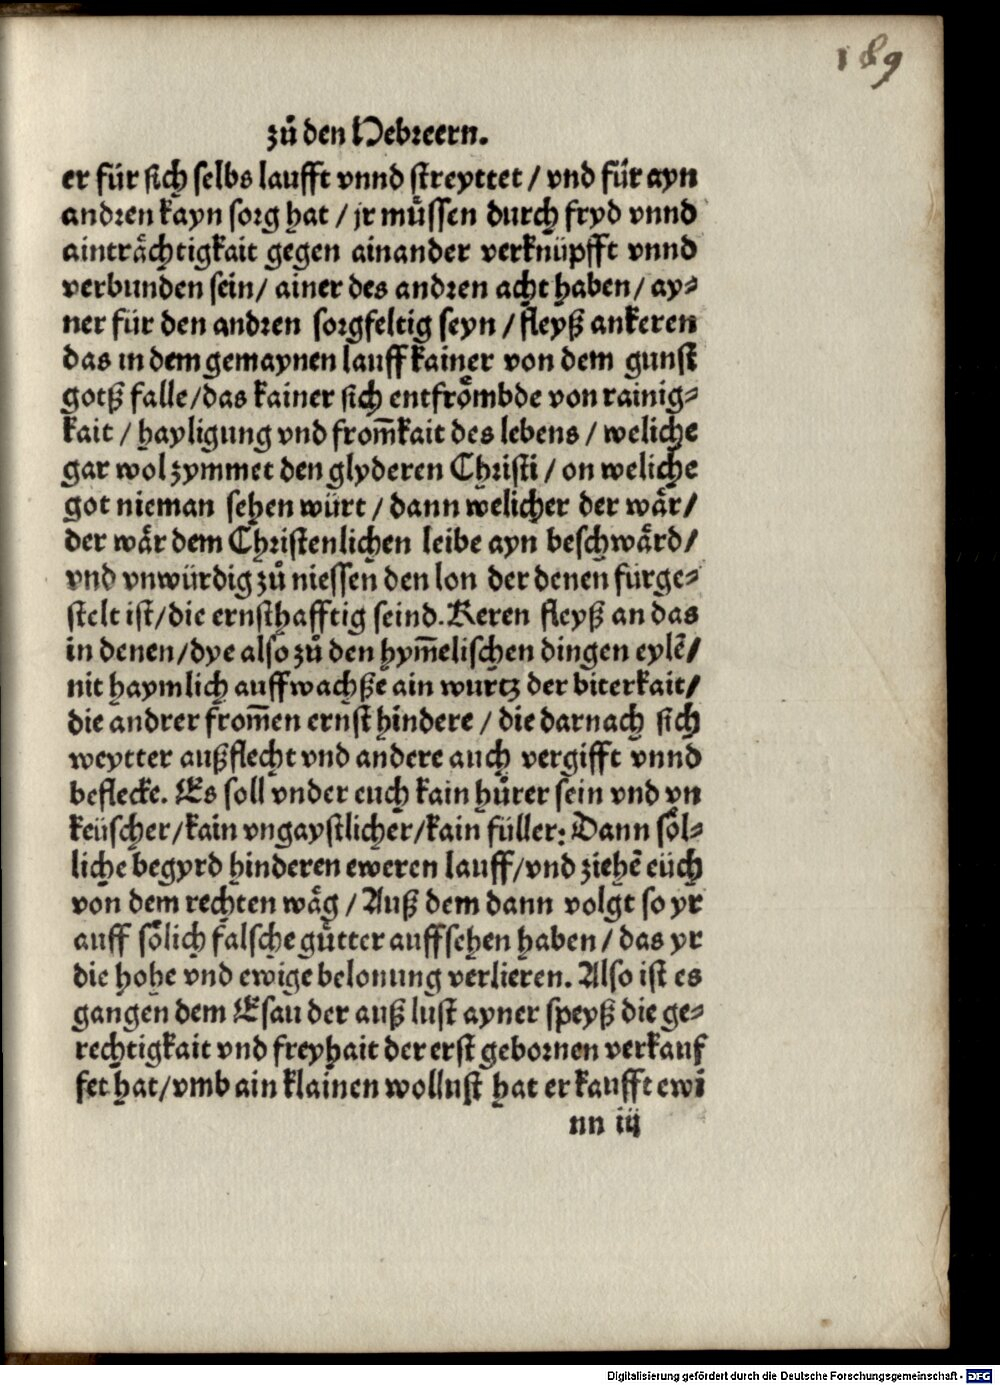 189
zů den Hebreern.
er für sich selbs laufft vnnd streyttet / vnd für ayn
andren kayn sorg hat / jr müssen durch fryd vnnd
ainträchtigkait gegen ainander verknüpfft vnnd
verbunden sein / ainer des andren acht haben / ay⸗
ner für den andren sorgfeltig seyn / fleyß ankeren
das in dem gemaynen lauff kainer von dem gunst
gotß falle / das kainer sich entfrömbde von rainig⸗
kait / hayligung vnd from̅kait des lebens / weliche
gar wol zymmet den glyderen Christi / on weliche
got nieman sehen würt / dann welicher der wär /
der wär dem Christenlichen leibe ayn beschwärd /
vnd vnwürdig zů niessen den lon der denen fürge⸗
stelt ist / die ernsthafftig seind. Keren fleyß an das
in denen / dye also zů den hym̅elischen dingen eylē /
nit haymlich auffwachße ain wurtz der biterkait /
die andrer from̅en ernst hindere / die darnach sich
weytter außflecht vnd andere auch vergifft vnnd
beflecke. Es soll vnder euch kain hůrer sein vnd vn
keüscher / kain vngaystlicher / kain füller: Dann söl⸗
liche begyrd hinderen eweren lauff / vnd ziehē eüch
von dem rechten wäg / Auß dem dann volgt so yr
auff sölich falsche gütter auffsehen haben / das yr
die hohe vnd ewige belonung verlieren. Also ist es
gangen dem Esau der auß lust ayner speyß die ge⸗
rechtigkait vnd freyhait der erst gebornen verkauf
fet hat / vmb ain klainen wollust hat er kaufft ewi
nn iij
Digitalisierung gefördert durch die Deutsche Forschungsgemeinschaft - DFG